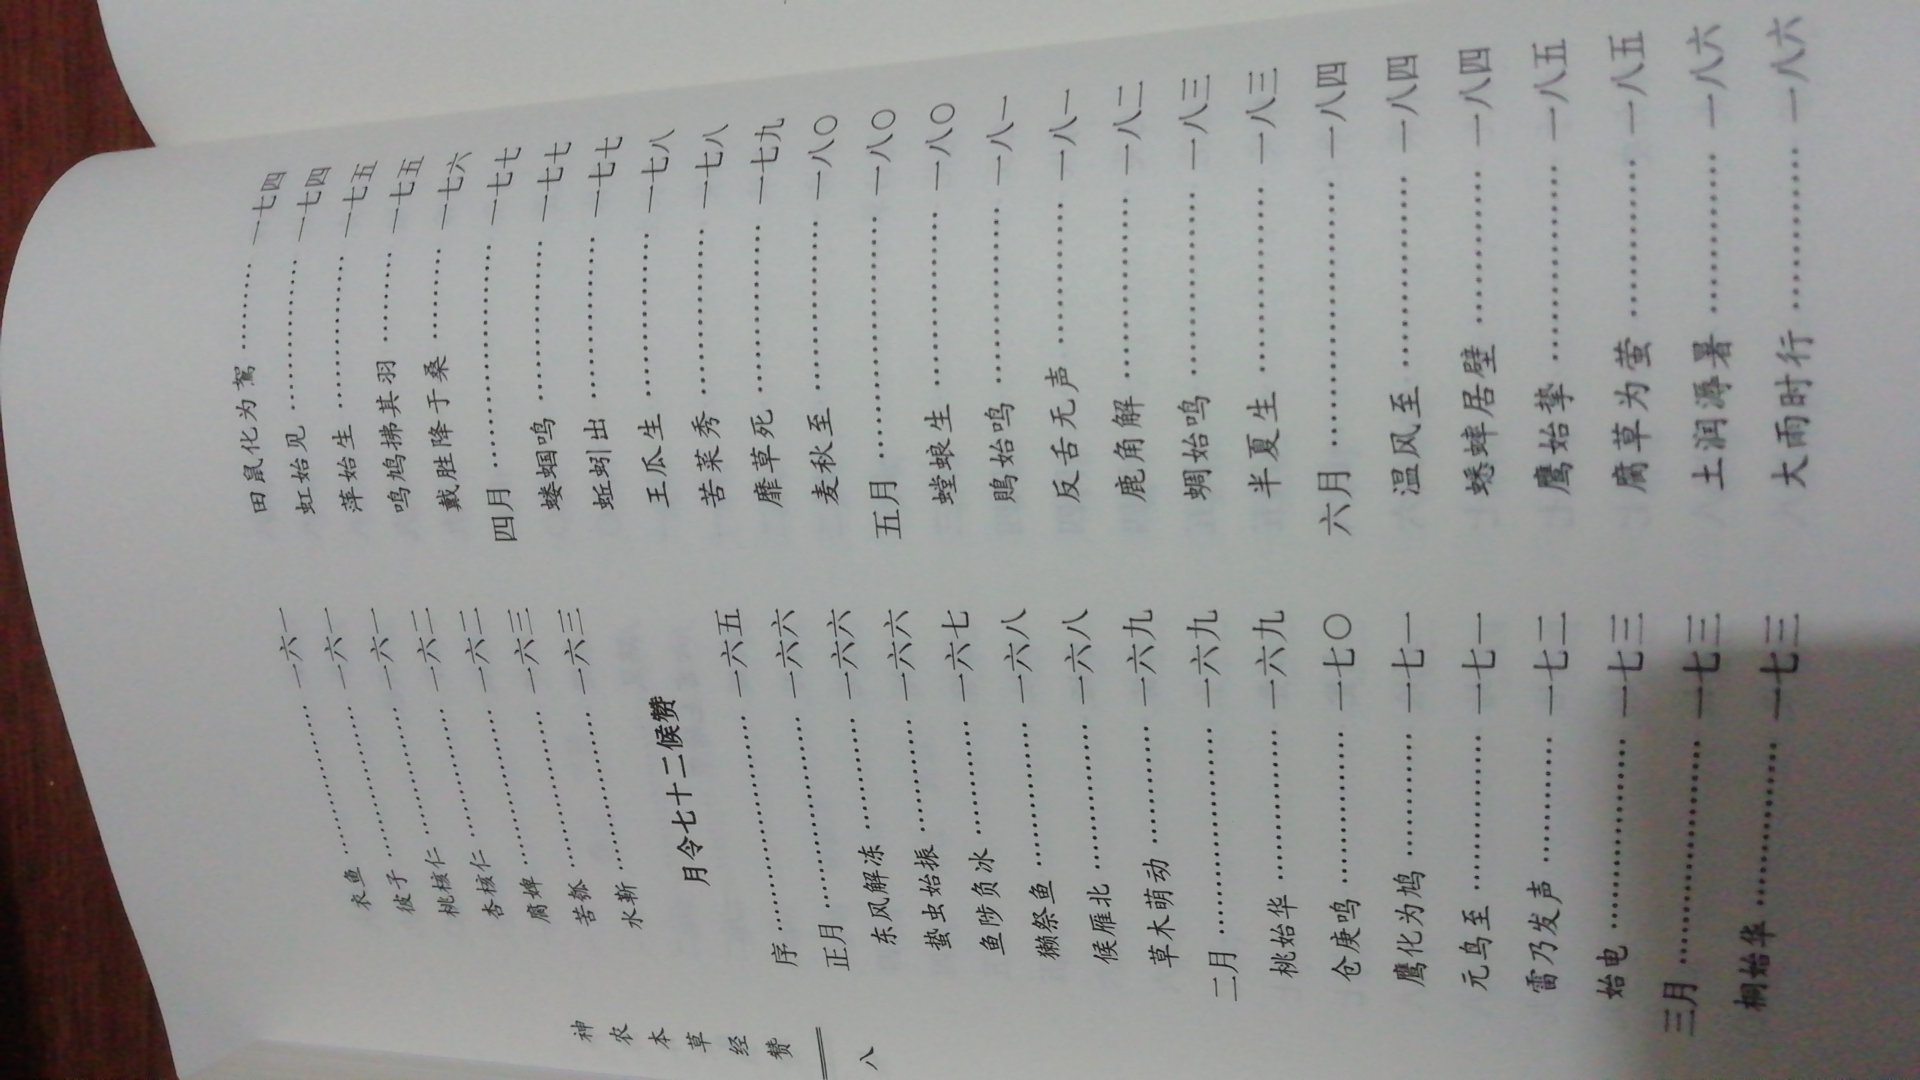 神农本草经赞
八
衣鱼……………………一六一
彼子……………………一六一
桃核仁…………………一六一
杏核仁…………………一六二
腐婢……………………一六二
苦瓠……………………一六三
水靳……………………一六三
月令七十二候赞
序………………………一六五
正月……………………一六六
东风解冻………………一六六
蛰虫始振………………一六六
鱼陟负冰………………一六七
獭祭鱼…………………一六八
候雁北…………………一六八
草木萌动………………一六九
二月……………………一六九
桃始华…………………一六九
仓庚鸣…………………一七〇
鹰化为鸠………………一七一
元鸟至…………………一七一
雷乃发声………………一七二
始电……………………一七三
三月……………………一七三
桐始华…………………一七三
田鼠化为鴽……………一七四
虹始见…………………一七四
萍始生…………………一七五
鸣鸠拂其羽……………一七五
戴胜降于桑……………一七六
四月……………………一七七
蝼蝈鸣…………………一七七
蚯蚓出…………………一七七
王瓜生…………………一七八
苦菜秀…………………一七八
靡草死…………………一七九
麦秋至…………………一八〇
五月……………………一八〇
螳蜋生…………………一八〇
鵙始鸣…………………一八一
反舌无声………………一八一
鹿角解…………………一八二
蜩始鸣…………………一八三
半夏生…………………一八三
六月……………………一八四
温风至…………………一八四
蟋蟀居壁………………一八四
鹰始挚…………………一八五
腐草为萤………………一八五
土润溽暑………………一八六
大雨时行………………一八六